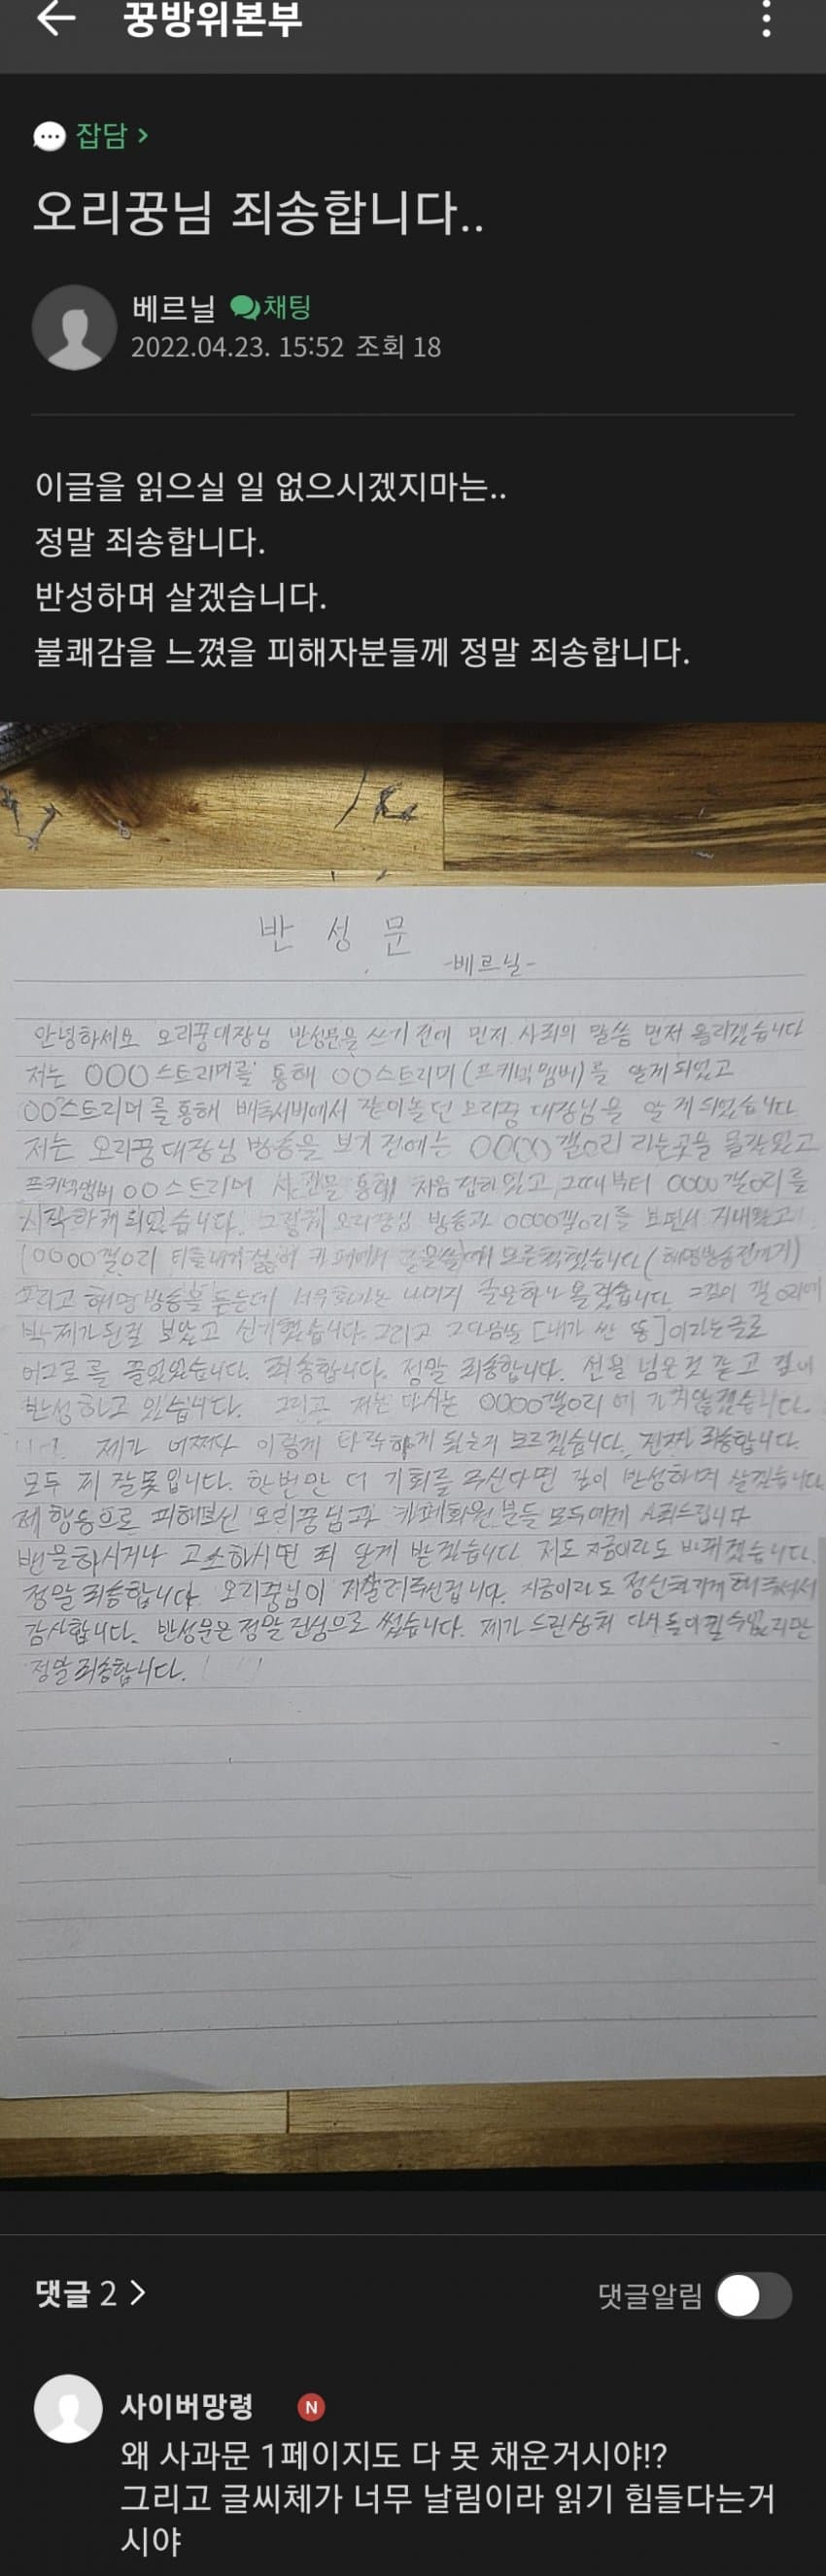 꿍방위본부
잡담 >
오리꿍님 죄송합니다..
베르닐 채팅
2022.04.23. 15:52 조회 18
이글을 읽으실 일 없으시겠지마는..
정말 죄송합니다.
반성하며 살겠습니다.
불쾌감을 느꼈을 피해자분들께 정말 죄송합니다.
반 성 문
-베르닐-
안녕하세요 오리꿍대장님 반성문을 쓰기 전에 먼저 사죄의 말씀 먼저 올리겠습니다
저는 OOO스트리머를 통해 OO스트리머(프키넉멤버)를 알게되었고
OO스트리머를 통해 배틀서버에서 같이놀던 오리꿍 대장님을 알게 되었습니다
저는 오리꿍대장님 방송을 보기 전에는 OOOO갤러리 라는곳을 몰랐었고
프키넉멤버 OO스트리머 통해 처음 접하였고 그때부터 OOOO갤러리를
시작하게 되었습니다. 오리꿍님 방송과 OOOO갤러리를 보면서 지내왔고
(OOOO갤러리 티를내기싫어 카페에서 모른척했습니다(해명방송전까지)
그리고 해명방송을 듣는데 너무화가난 나머지 글을하나 올렸습니다. 그글이 갤러리에
박제가된걸 보았고 신기했습니다. 그리고 그다음날 [내가 싼 똥]이라는글로
어그로를 끌었었습니다. 죄송합니다. 정말 죄송합니다. 선을 넘은것 같고 깊이
반성하고 있습니다. 그리고 저는 다시는 OOOO갤러리에 가지않겠습니다.
제가 어쩌다 이렇게 타락하게 됐는지 모르겠습니다. 진짜 죄송합니다.
모두 제 잘못입니다. 한번만 더 기회를 주신다면 깊이 반성하며 살겠습니다
제 행동으로 피해보신 오리꿍님과 카페회원 분들 모두에게 사죄드립니다
밴을하시거나 고소하시면 죄 달게 받겠습니다. 저도 지금이라도 바뀌겠습니다.
정말 죄송합니다. 오리꿍님이 지금이라도 정신차리게 해주셔서
감사합니다. 반성문은 정말 진심으로 썼습니다. 제가 드린상처 다시 돌이킬수없지만
정말 죄송합니다.
댓글 2 >
댓글알림
사이버망령 N
왜 사과문 1페이지도 다 못 채운거시야!?
그리고 글씨체가 너무 날림이라 읽기 힘들다는거
시야